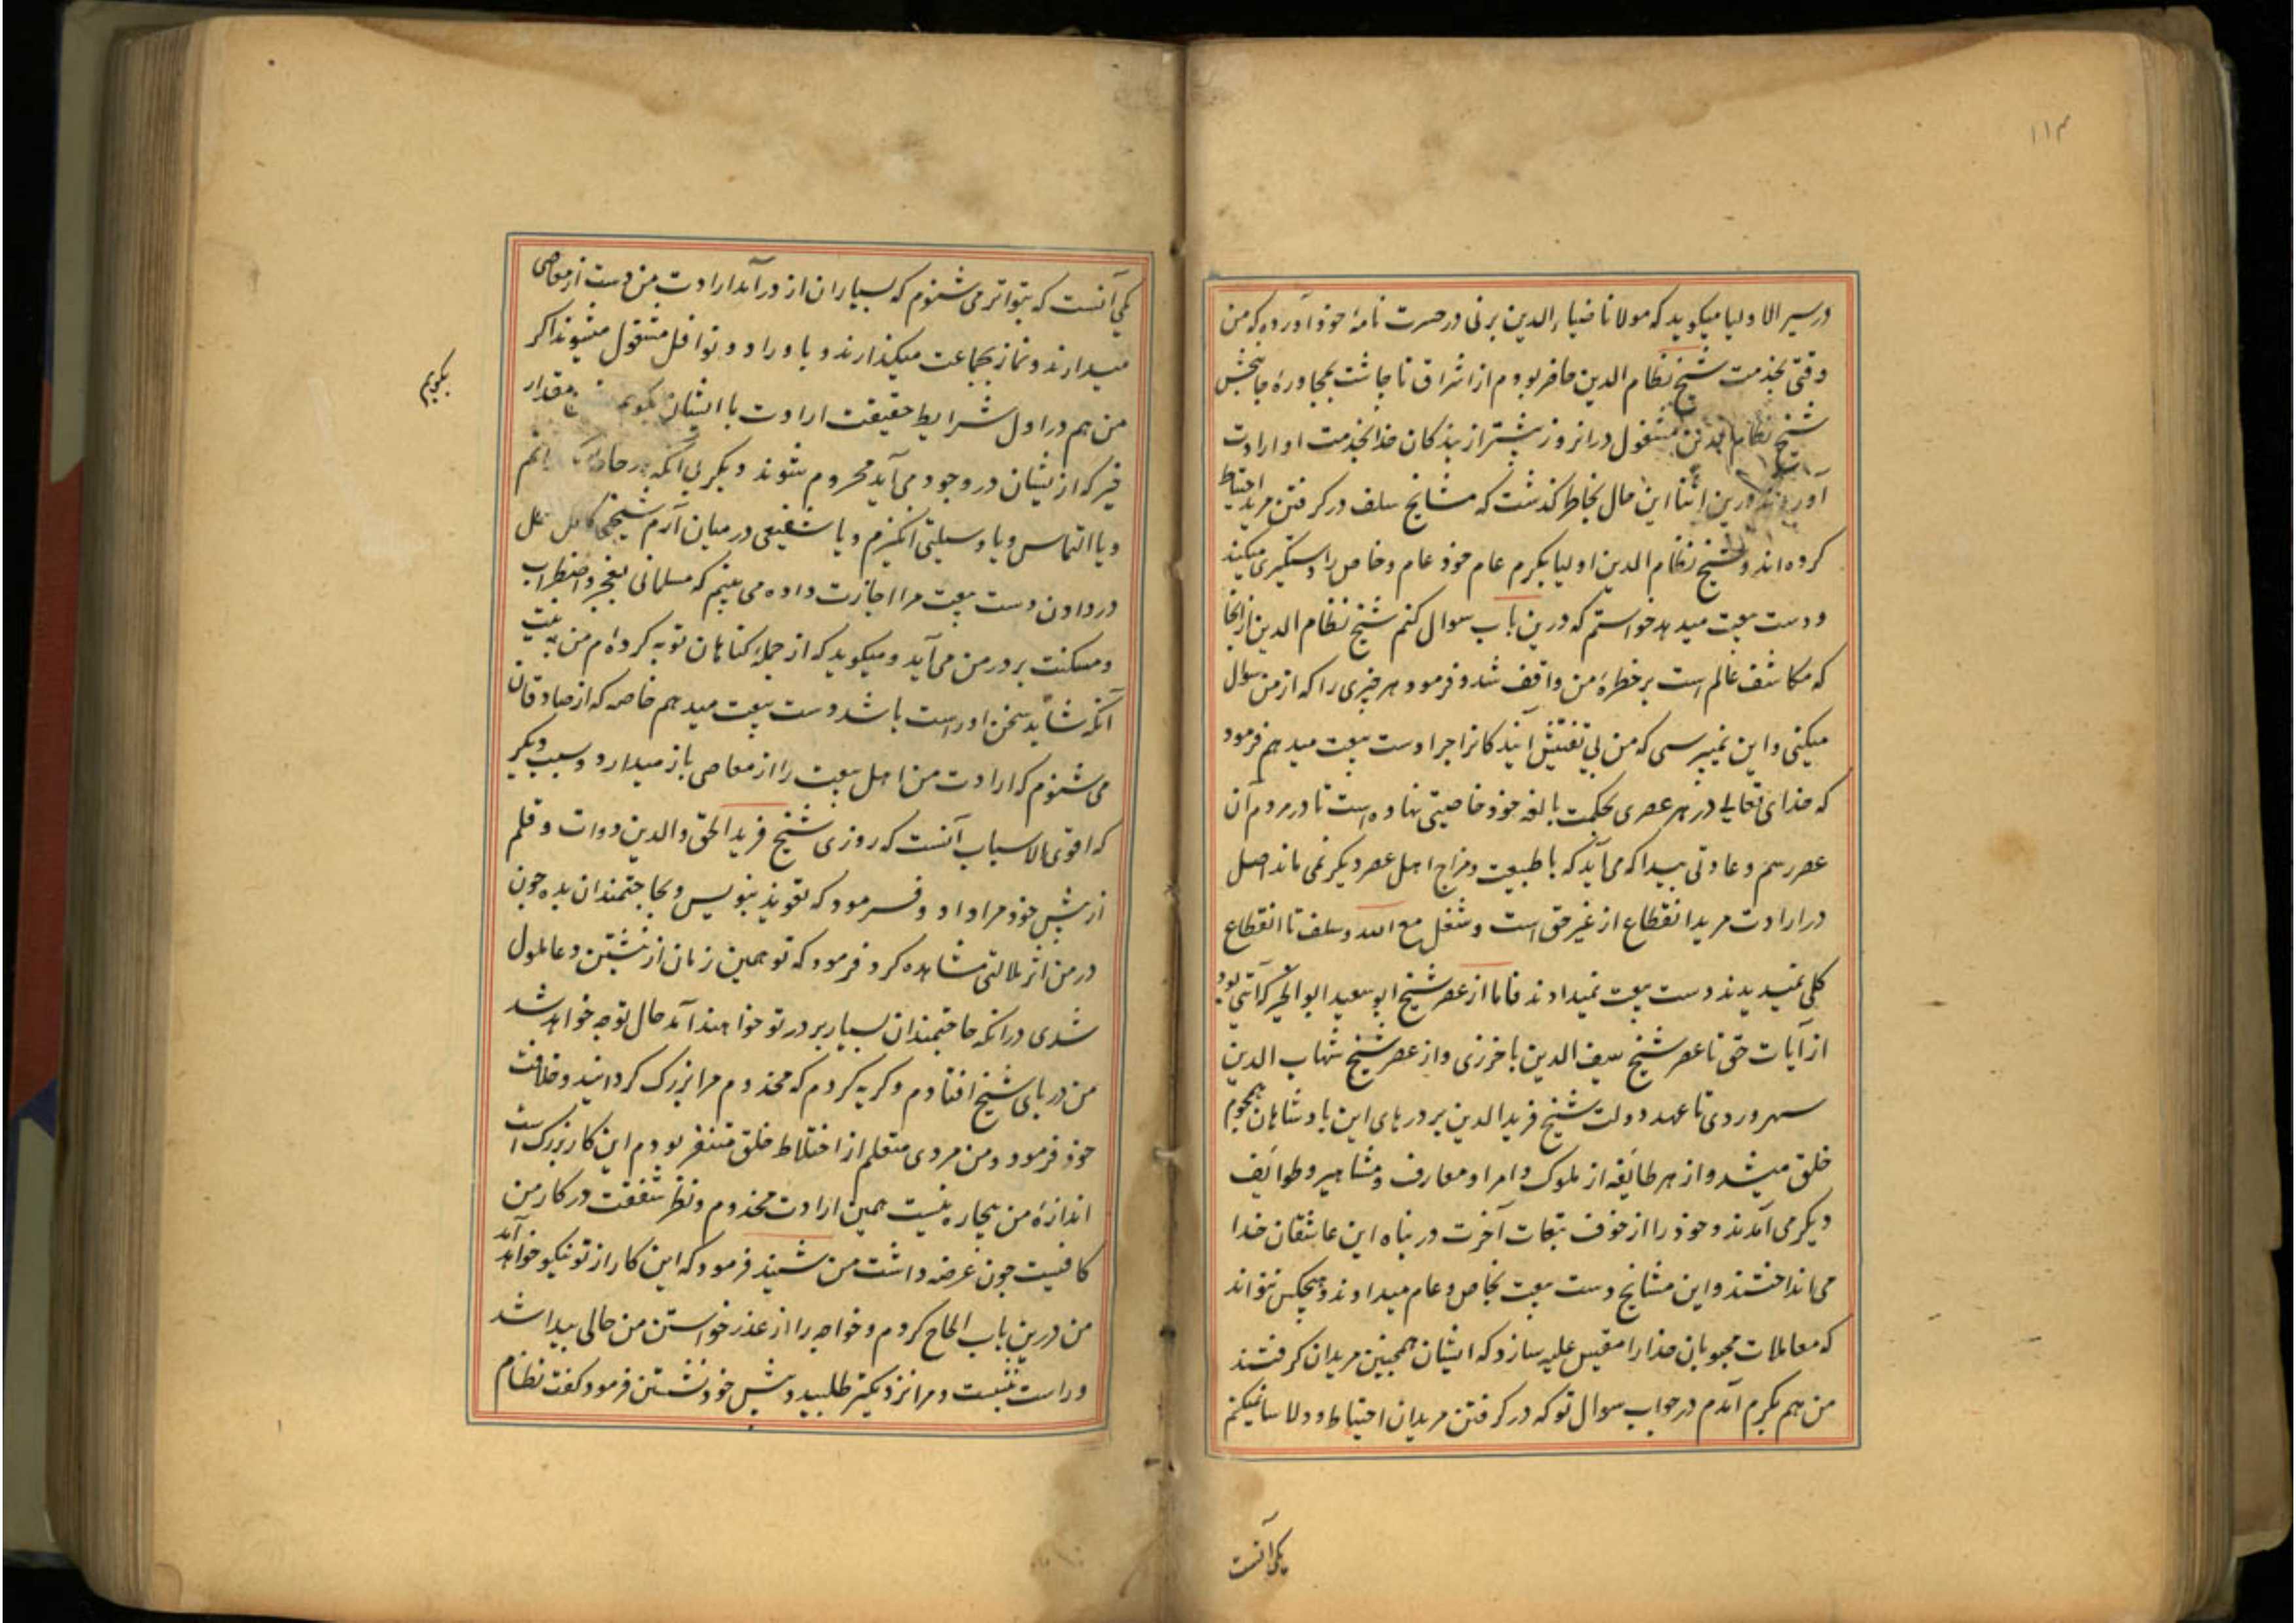 ۱۱۳
در سیر الاولیا میکوید که مولانا ضیاء الدین برنی در حسرت نامهٔ خود آورده که من
وقتی بخدمت شیخ نظام الدین حاضر بودم از اشراق تا چاشت بمجاورهٔ جانبخش
شیخ نظام الدین مشغول در انروز بیشتر از بندکان خدا بخدمت او ارادت
آوردند درین اثنا این حال بخاطر کذشت که مشایخ سلف در کرفتن مرید احتیاط
کرده اند و شیخ نظام الدین اولیا بکرم عام خود عام و خاص را دستکیری میکند
و دست بیعت میدهد خواستم که درین باب سوال کنم شیخ نظام الدین از انجا
که مکاشف عالم است بر خطرهٔ من واقف شد و فرمود هر چیزی را که از من سوال
میکنی و این نمیپرسی که من بی تفتیش آیندکانرا چرا دست بیعت میدهم فرمود
که خدای تعالی در هر عصری بحکمت بالغه خود خاصیتی نهاده است تا در مردم آن
عصر رسم و عادتی پیدا که می آید که با طبیعت و مزاج اهل عصر دیکر نمی ماند اصل
در ارادت مرید انقطاع از غیر حق است و شغل مع الله و سلف تا انقطاع
کلی نمیدیدند دست بیعت نمیدادند فاما از عصر شیخ ابو سعید ابو الخیر که آیتی بود
از آیات حق تا عصر شیخ سیف الدین باخرزی و از عصر شیخ شهاب الدین
سهروردی تا عهد دولت شیخ فرید الدین بر درهای این بادشاهان هجوم
خلق میشد و از هر طایفه از ملوک و امرا و معارف و مشاهیر و طوایف
دیکر می آمدند و خود را از خوف تبعات آخرت در پناه این عاشقان خدا
می انداختند و این مشایخ دست بیعت بخاص و عام میدادند و هیچکس نتواند
که معاملات محبوبان خدا را مقیس علیه سازد که ایشان همچنین مریدان کرفتند
من هم بکرم آمدم در جواب سوال تو که در کرفتن مریدان احتیاط و دلاسا نمیکنم
یکی آنست
یکی آنست که بتواتر می شنوم که بسیاران از درآمد ارادت من دست از معاصی
میدارند و نماز بجماعت میکذارند و باوراد و نوافل مشغول میشوند اکر
من هم در اول شرایط حقیقت ارادت با ایشان بکویم مقدار
بکویم
خیر که از یشان در وجود می آید محروم شوند دیکر بی آنکه
و یا التماس و یا وسیلتی انکیزم و یا شفیعی در میان آرم شیخی کامل
در دادن دست بیعت مرا اجازت داده می بینم که مسلمانی بعجز و اضطراب
و مسکنت بر در من می آید و میکوید که از جمله کناهان توبه کرده ام من به نیت
آنکه شاید سخن او راست باشد دست بیعت میدهم خاصه که از صادقان
می شنوم که ارادت من اهل بیعت را از معاصی باز میدارد و سبب دیکر
که اقوی الاسباب آنست که روزی شیخ فرید الحق و الدین دوات و قلم
از پیش خود مرا داد و فرمود که تعویذ بنویس و بحاجتمندان بده چون
در من اثر ملالتی مشاهده کرد فرمود که تو همین زمان از نبشتن دعا ملول
شدی در انکه حاجتمندان بسیار بر در تو خواهند آمد حال تو چه خواهد شد
من در پای شیخ افتادم و کریه کردم که مخدوم مرا بزرک کردانید و خلافت
خود فرمود و من مردی متعلم از اختلاط خلق متنفر بودم این کار بزرک است
اندازهٔ من بیچاره نیست همین ارادت مخدوم و نظر شفقت در کار من
کافیست چون عرضه داشت من شنید فرمود که این کار از تو نیکو خواهد آمد
من درین باب الحاح کردم و خواجه را از عذر خواستن من حالی پیدا شد
و راست بنشست و مرا نزدیکتر طلبید و پیش خود نشستن فرمود کفت نظام